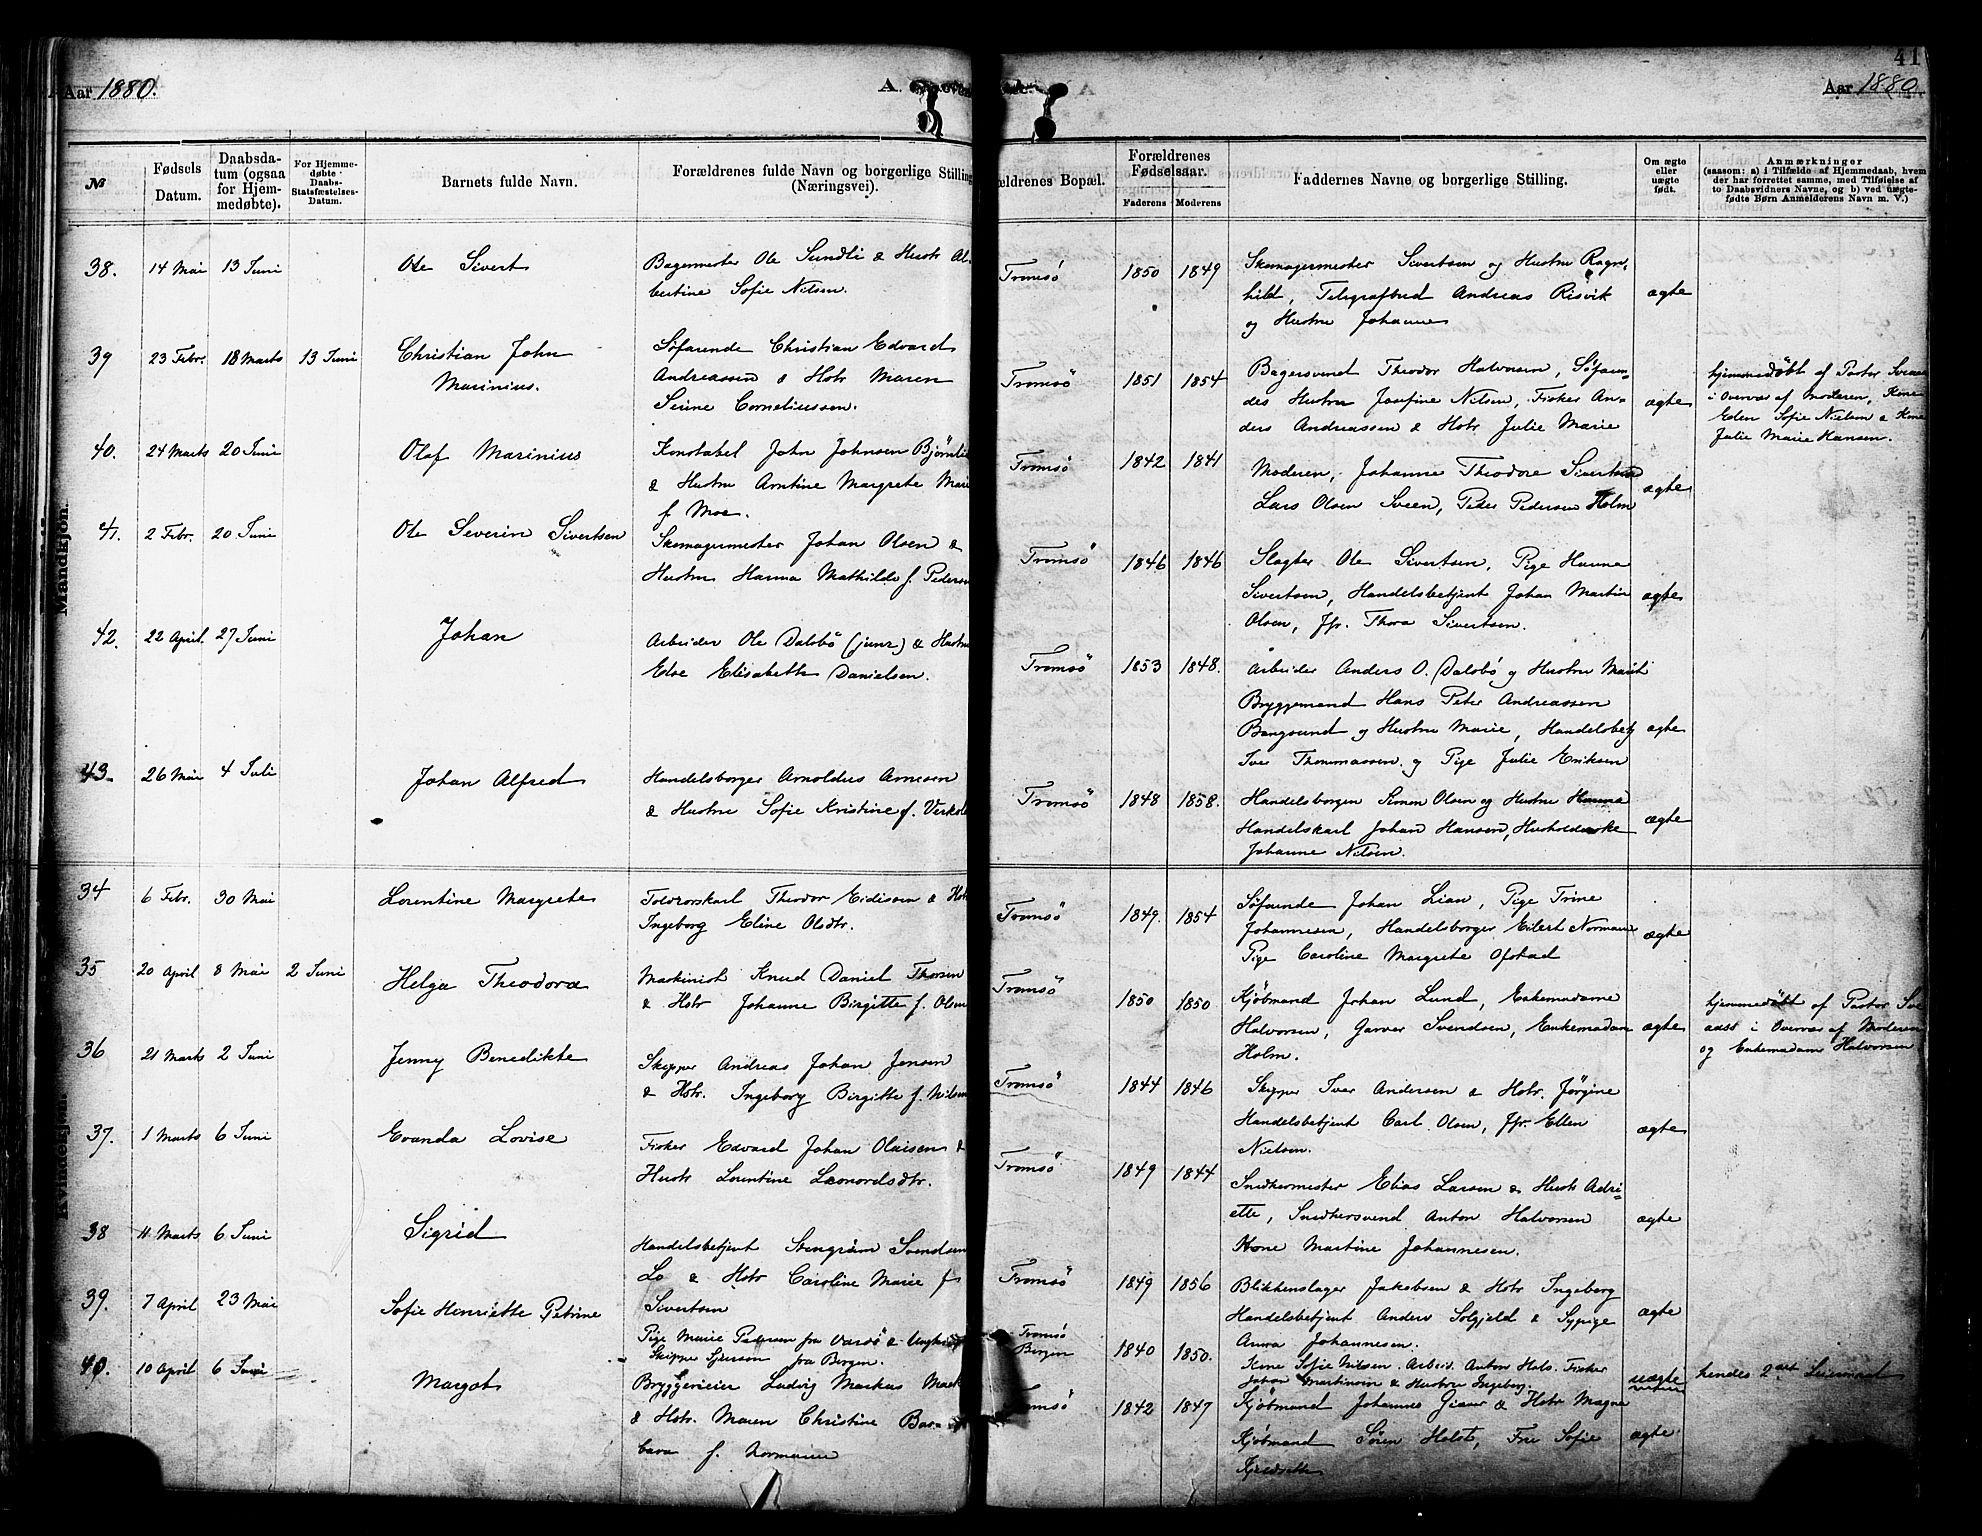 Aar 1880.
A.
41
Aar 1880.
№
Fødsels Datum.
Daabsda-
tum (ogsaa
for Hjem-
medøbte).
For Hjemme-
døbte
Daabs-
Statsfæstelses-
Datum.
Barnets fulde Navn.
Forældrenes fulde Navn og borgerlige Stilling
(Næringsvei).
ældrenes Bopæl.
Forældrenes
Fødselsaar.
Faderens Moderens
Faddernes Navne og borgerlige Stilling.
Om ægte
eller
uægte
født.
Anmærkninger
(saasom: a) i Tilfælde af Hjemmedaab, hvem
der har forrettet samme, med Tilføielse af
to Daabsvidners Navne, og b) ved uægte-
fødte Børn Anmelderens Navn m. V.)
Mandkjøn.
38. 14 Mai 13 Juni Ole Sivert
Bagermester Ole Sundli & Hustr Al-
bertine Sofie Nilsen.
Tromsö 1850 1849
Skomagermester Sivertsen og Hustru Ragn-
hild, Telegrafbud Andreas Risvik
og Hustru Johanne
ægte
39 23 Febr. 18 Marts 13 Juni Christian John
Marinius.
Söfarende Christian Edvard
Andreassen & Hstr Maren
Seine Corneliussen.
Tromsö 1851 1854
Bagersvend Theodor Halvorsen, Söfaren-
des Hustru Josefine Nilsen, Fisker An-
ders Andreassen & Hstr Julie Marie
ægte
hjemmedöbt af Pastor
i Overvær af Moderen, Kone
Sofie Nielsen & Kone
Julie Marie Hansen.
40. 24 Marts 20 Juni Olaf Marinius
Konstabel John Johnsen Bjørnli
& Hustru Arntine Margrete Marie
f. Moe.
Tromsö 1842 1841
Moderen, Johanne Theodore Sivertsen
Lars Olsen Sveen, Peder Pedersen Holm
ægte
41. 2 Febr. 20 Juni Ole Severin Sivertsen
Skomagermester Johan Olsen &
Hustru Hanna Mathilde f. Pedersen
Tromsö 1846 1846
Slagter Ole Sivertsen, Pige Hanna
Sivertsen, Handelsbetjent Johan Martin
Olsen, Jfr. Thora Sivertsen.
ægte
42. 22 April 27 Juni Johan
Arbeider Ole Dalsbö (junr) & Hustru
Else Elisabeth Danielsen.
Tromsö 1853 1848.
Arbeider Anders O. Dalsbö og Hustru Marit
Bryggemand Hans Peter Andreassen
Bangsund og Hustru Marie, Handelsbetj
Iver Thommassen og Pige Julie Eriksen
ægte
43. 26 Mai 4 Juli Johan Alfred
Handelsborger Arnoldus Arnesen
& Hustru Sofie Kristine f.
Tromsö 1848 1858.
Handelsborger Simon Olsen og Hustru Hanna
Handelskarl Johan Hansen, Husholderske
Johanne Nilsen.
ægte
34 6 Febr. 30 Mai Lorentine Margrete
Toldrorskarl Theodor Eidissen & Hstr
Ingeborg Eline Olsdtr.
Tromsö 1849. 1854
Söfarende Johan Lian, Pige Trine
Johannesen, Handelsborger Eilert Normann
Pige Caroline Margrete Ofstad
ægte
35 20 April 8 Mai 2 Juni Helga Theodora
Maskinist Knud Daniel Thorsen
& Hstr Johanne Birgitte f. Olsen
Tromsö 1850 1850
Kjöbmand Johan Lund, Enkemadame
Halvorsen, Garver Svendsen, Enkemadam
Holm.
ægte
hjemmedöbt af Pastor
i Overvær af Moderen
og Enkemadam Halvorsen
36 21 Marts 2 Juni Jenny Benedikte
Skipper Andreas Johan Jensen
& Hstr. Ingeborg Birgitte f. Nilsen
Tromsö 1844 1846
Skipper Iver Andersen & Hstr. Jørgine
Handelsbetjent Carl Olsen, Jfr. Ellen
Nielsen.
ægte
37. 1 Marts 6 Juni Evanda Lovise
Fisker Edvard Johan Olaisen &
Hustr Lorentine Leonordsdtr.
Tromsö 1849 1844
Snedkermester Elias Larsen & Hustr Adri-
ette, Snedkersvend Anton Halvorsen
Kone Martine Johannesen.
ægte
38 11 Marts 6 Juni Sigrid
Handelsbetjent Stengrim Svendsen
Lo & Hstr Caroline Marie f
Sivertsen
Tromsö 1849 1856
Blikkenslager Jakobsen & Hstr Ingeborg
Handelsbetjent Anders Solgjeld & Sypige
Anna Johannesen.
ægte
39. 7 April 23 Mai Sofie Henriette Petrine
Pige Marie Pedersen fra Vardö & Ungkarl
Skipper fra Bergen.
Tromsö
Bergen 1840 1850.
Kone Sofie Nilsen. Arbeid. Anton Hals. Fisker
Johan Martinsen & Hustru Ingeborg.
uægte
hendes 2det Leiermaal
40. 10 April 6 Juni Margot
Bryggerieier Ludvig Markus Mack
& Hstr. Maren Christine Bar-
bara f. Normann
Tromsö 1842 1847
Kjöbmand Johannes Giæver & Hstr Magna
Kjöbmand Sören Holst, Fru Sofie
ægte